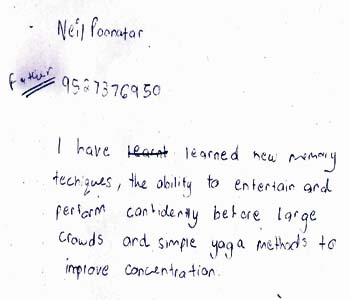 Neil Poonatar
Father
9527376950
I have learnt learned new memory
techiques, the ability to entertain and
perform confidently before large
crowds and simple yoga methods to
improve concentration.